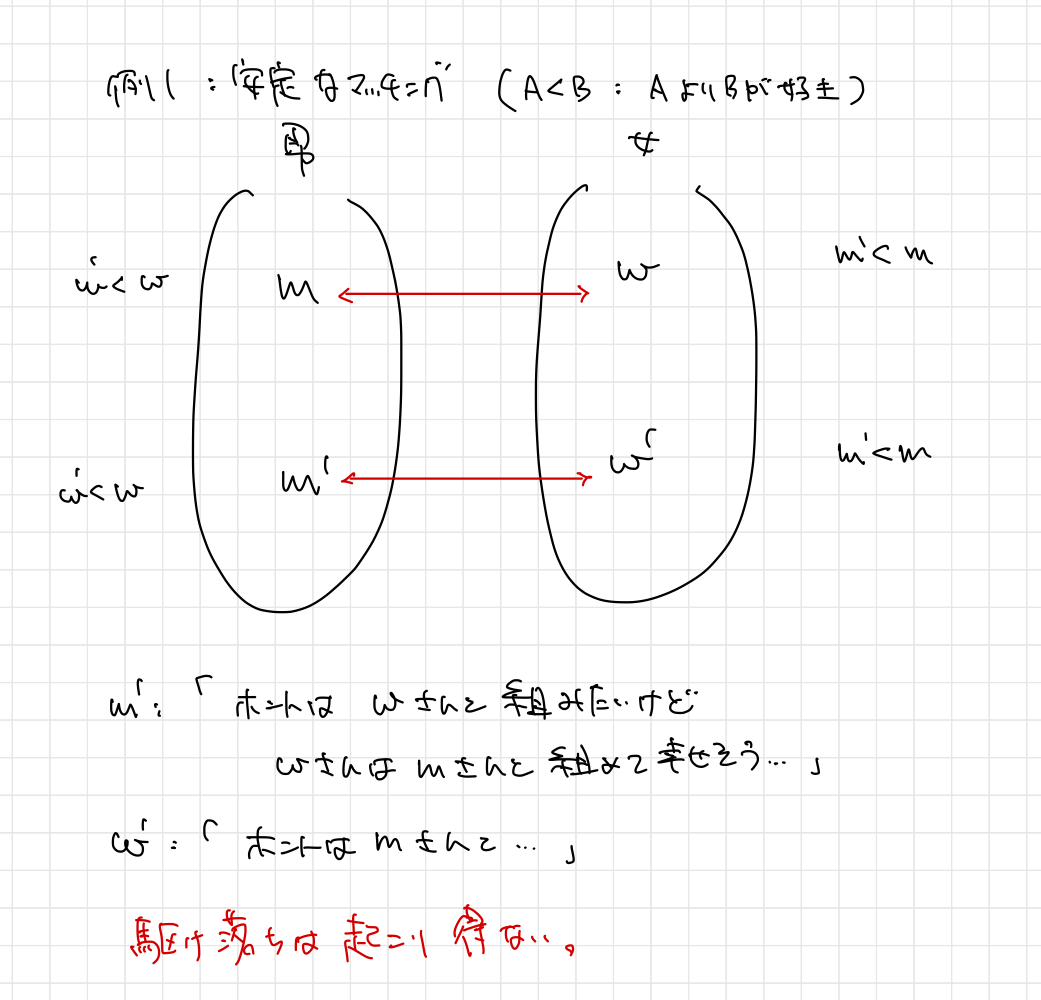 例1：“安定なマッチング” (A<B：AよりBが好き)
男 女
w'<w m w m'<m
w'<w m' w' m'<m
m'：「ホントは wさんと 組みたいけど
wさんは mさんと 組めて 幸せそう…」
w'：「ホントは mさんと…」
駆け落ちは 起こり得ない。